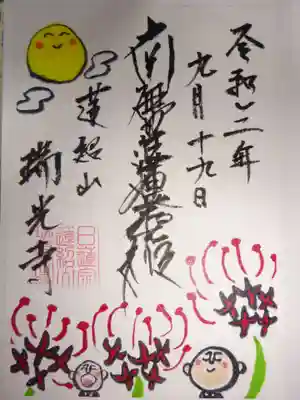 令和二年
九月十九日
南無妙法蓮華経
蓮紹山
瑞光寺